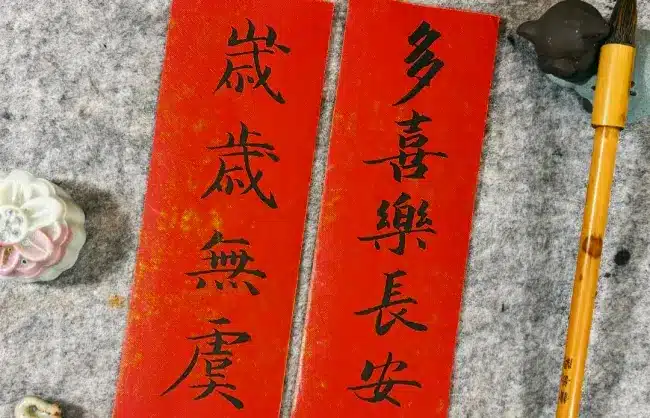 多喜樂長安
歲歲無虞